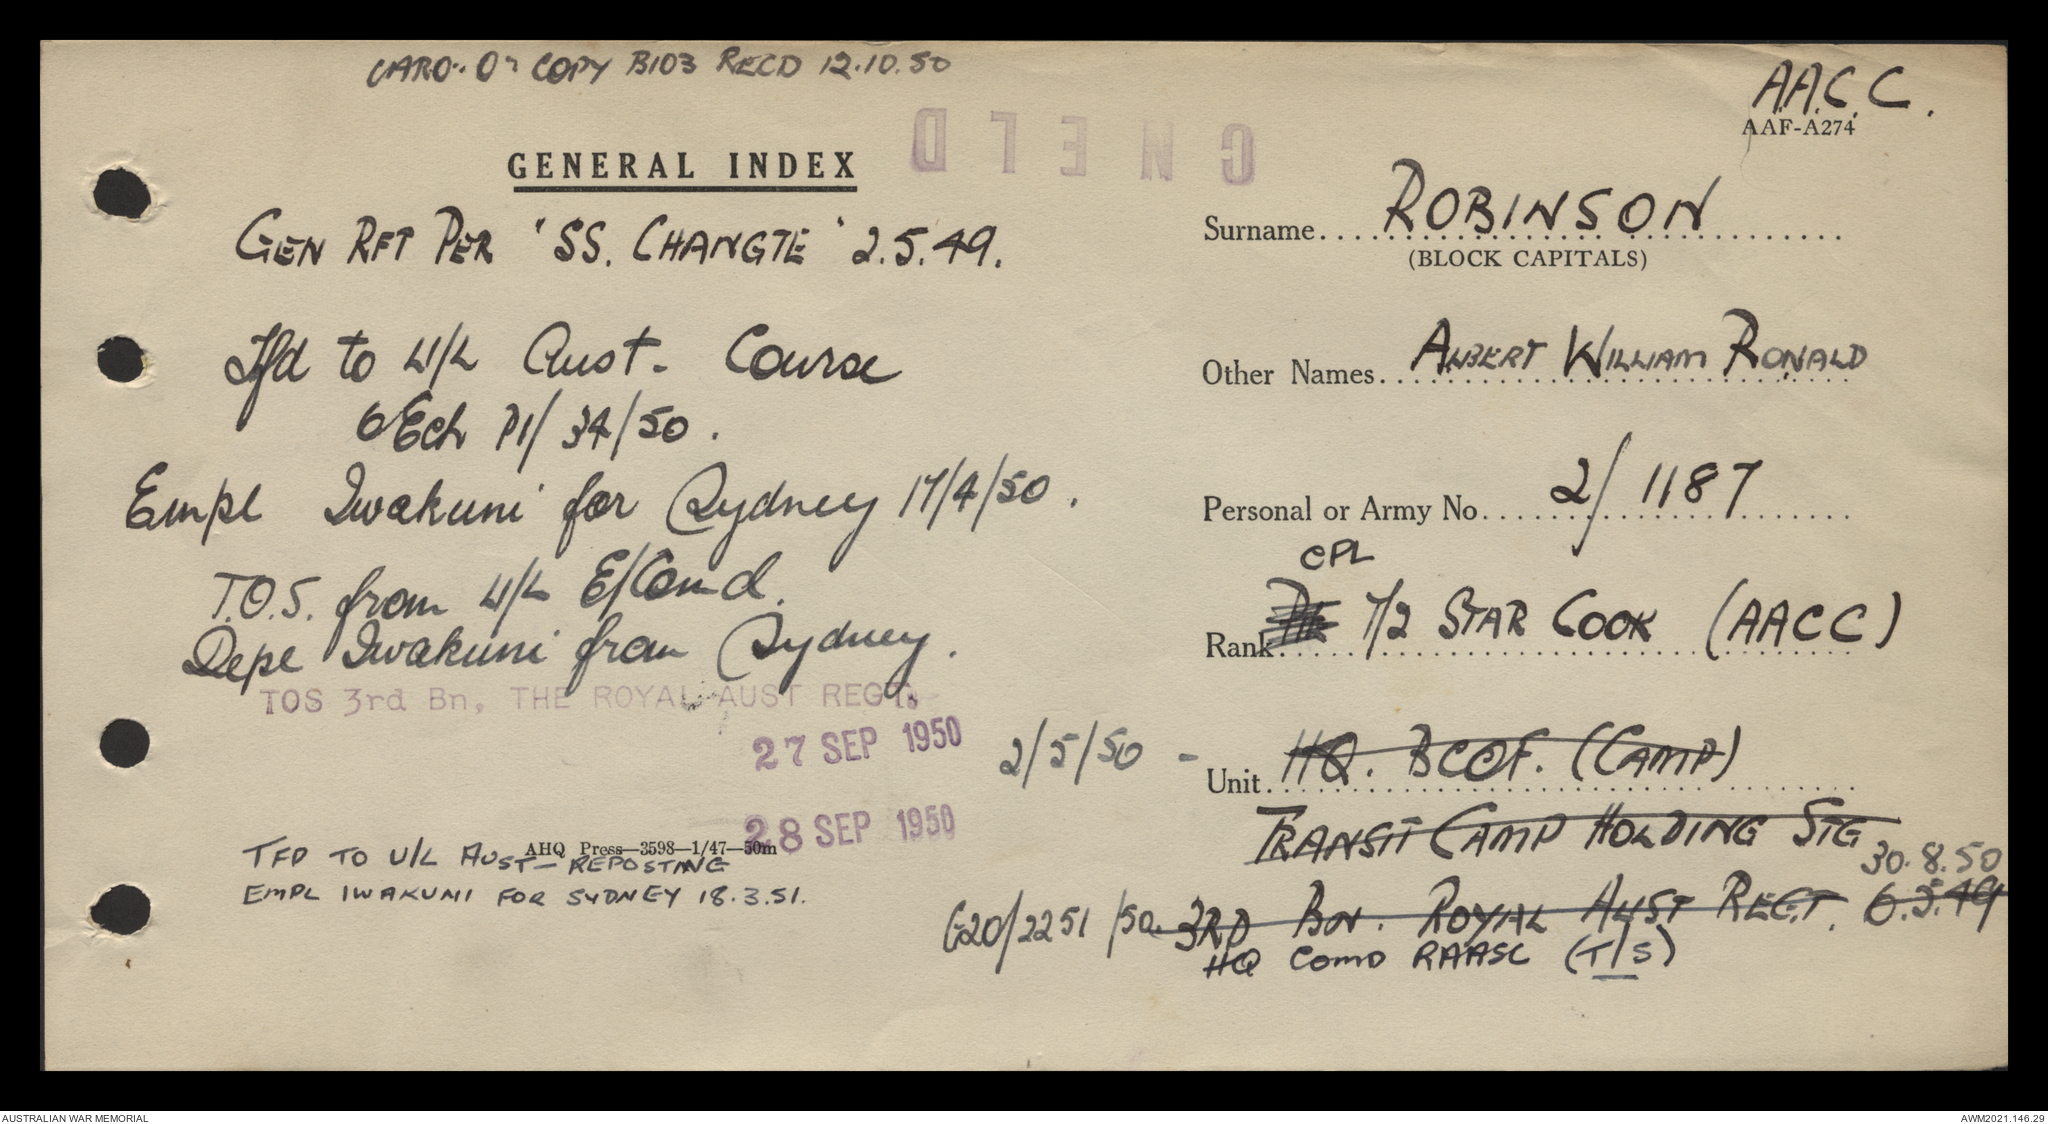 COPY B103 RECD 12.10.50
A.A.C.C.
AAF-A274
GENERAL INDEX
GEN RFT PER "SS. CHANGTE" 2.5.49.
Tfd to U/L Aust. Course
6 Ech P1/34/50.
Empl Iwakuni for Sydney 17/4/50.
T.O.S. from U/L E/Comd.
Depl Iwakuni from Sydney.
TOS 3rd Bn, THE ROYAL AUST REGT.
27 SEP 1950
28 SEP 1950
AHQ Press—3598—1/47—50m
TFD TO U/L AUST - REPOSTING
EMPL IWAKUNI FOR SYDNEY 18.3.51.
Surname ROBINSON
(BLOCK CAPITALS)
Other Names ALBERT WILLIAM RONALD
Personal or Army No. 2/1187
CPL
Rank Pte T/2 STAR COOK (AACC)
2/5/50 -
Unit HQ. BCOF. (CAMP)
TRANSIT CAMP HOLDING STG
30.8.50
G20/2251/50. 3RD BN. ROYAL AUST REGT. 6.5.49
HQ COMD RAASC (T/S)
AUSTRALIAN WAR MEMORIAL
AWM2021.146.29